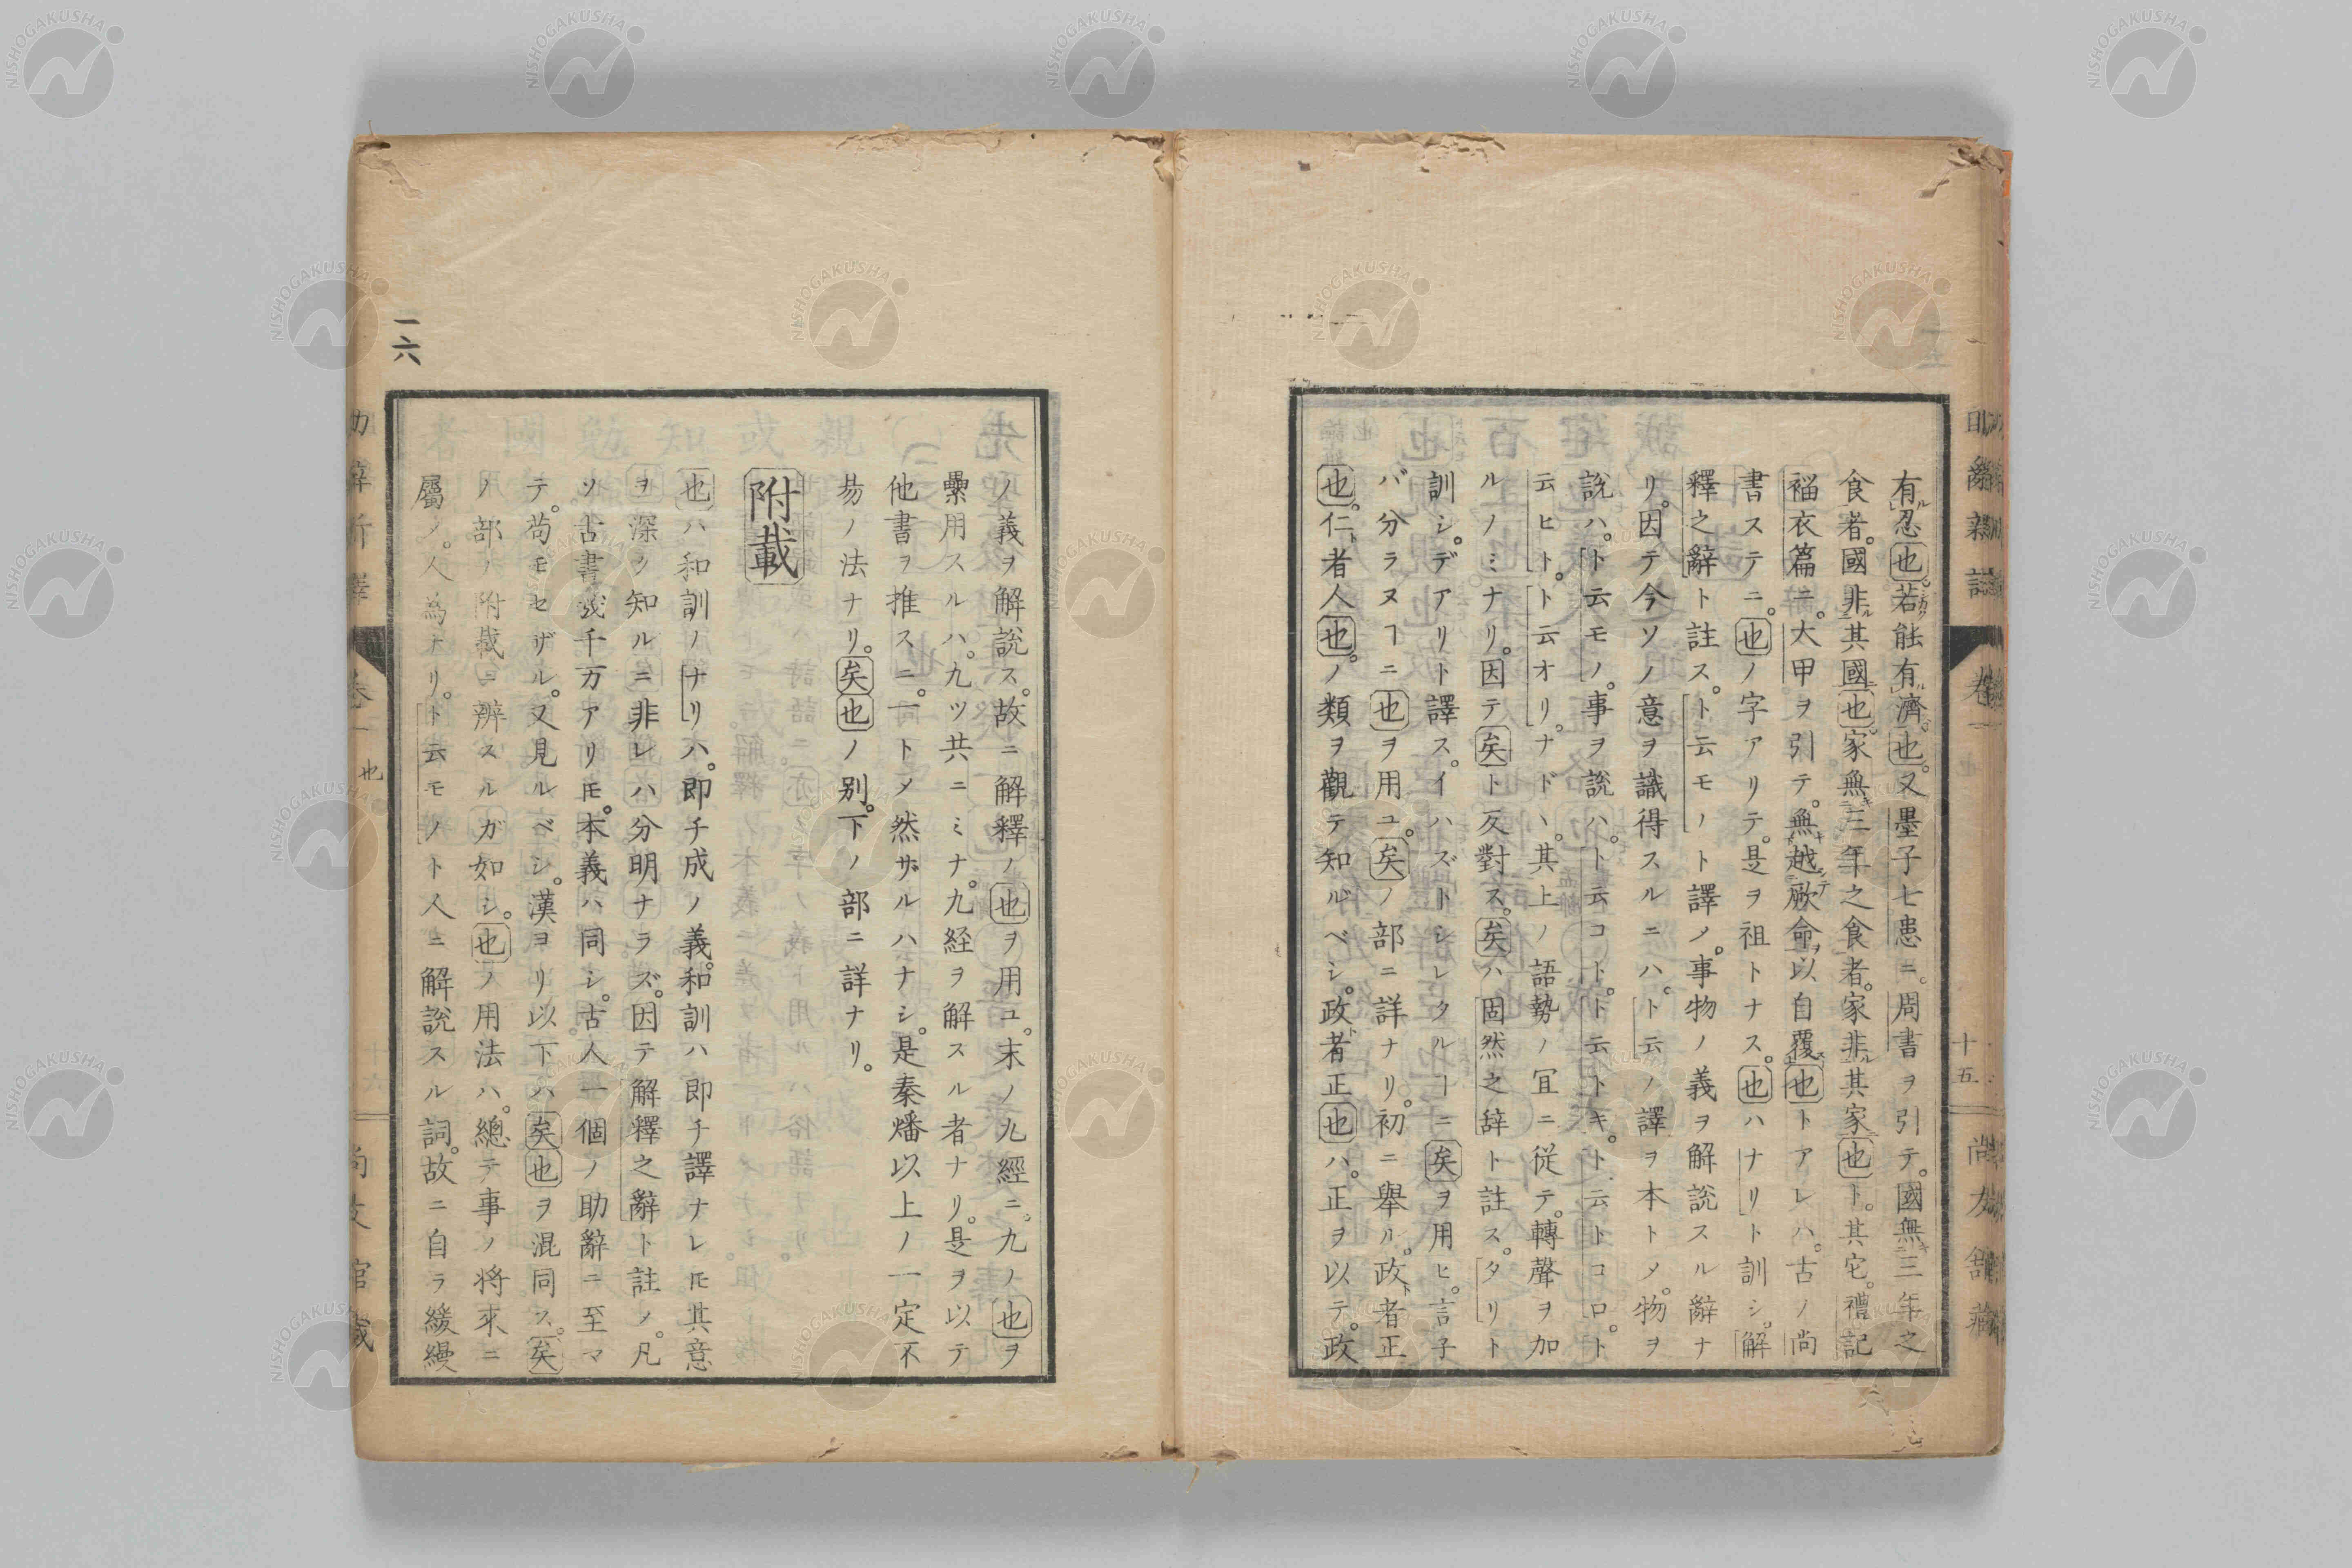 有忍也若能有濟也。又墨子七患ニ。周書ヲ引テ。國無三年之
食者。國非其國也家無三年之食者。家非其家也ト。其它。禮記
緇衣篇ニ。大甲ヲ引テ。無越厥命以自覆也トアレハ。古ノ尚
書ステニ。也ノ字アリテ。是ヲ祖トナス。也ハナリト訓シ。解
釋之辭ト註ス。ト云モノト譯ノ。事物ノ義ヲ解說スル辭ナ
リ。因テ今ソノ意ヲ識得スルニハ。ト云ノ譯ヲ本トメ。物ヲ
說ハ。ト云モノ。事ヲ說ハ。ト云コト。ト云トキ。ト云トコロ。ト
云ヒト。ト云オリ。ナドヽ。其上ノ語勢ノ冝ニ従テ。轉聲ヲ加
ルノミナリ。因テ矣ト反對ス。矣ハ固然之辞ト註ス。タリト
訓シ。デアリト譯ス。イハズトシレタルヿニ矣ヲ用ヒ。言子
バ分ラヌヿニ也ヲ用ユ。矣ノ部ニ詳ナリ。初ニ舉ル。政者正
也。仁者人也。ノ類ヲ觀テ知ルベシ。政者正也ハ。正ヲ以テ。政
ノ義ヲ解說ス。故ニ解釋ノ也ヲ用ユ。末ノ九經ニ。九ノ也ヲ
纍用スルハ。九ツ共ニミナ。九経ヲ解スル者ナリ。是ヲ以テ
他書ヲ推スニ。一トメ然サルハナシ。是秦燔以上ノ一定不
昜ノ法ナリ。矣也ノ別。下ノ部ニ詳ナリ。
附載
也ハ和訓ノナリハ。即チ成ノ義。和訓ハ即チ譯ナレ𪜈其意
ヲ深ク知ルニ非レハ分明ナラズ。因テ解釋之辭ト註ノ。凡
ソ古書幾千万アリモ𪜈。本義ハ同シ。古人一個ノ助辭ニ至マ
テ。苟モセザル。又見ルベシ。漢ヨリ以下ハ矣也ヲ混同ス。矣
ノ部ノ附載ニ辨スルガ如シ。也ノ用法ハ。總テ事ノ将來ニ
屬ノ。人為ナリ。ト云モノト人ニ解說スル詞。故ニ自ラ緩縵
一六
卷一
也
十五